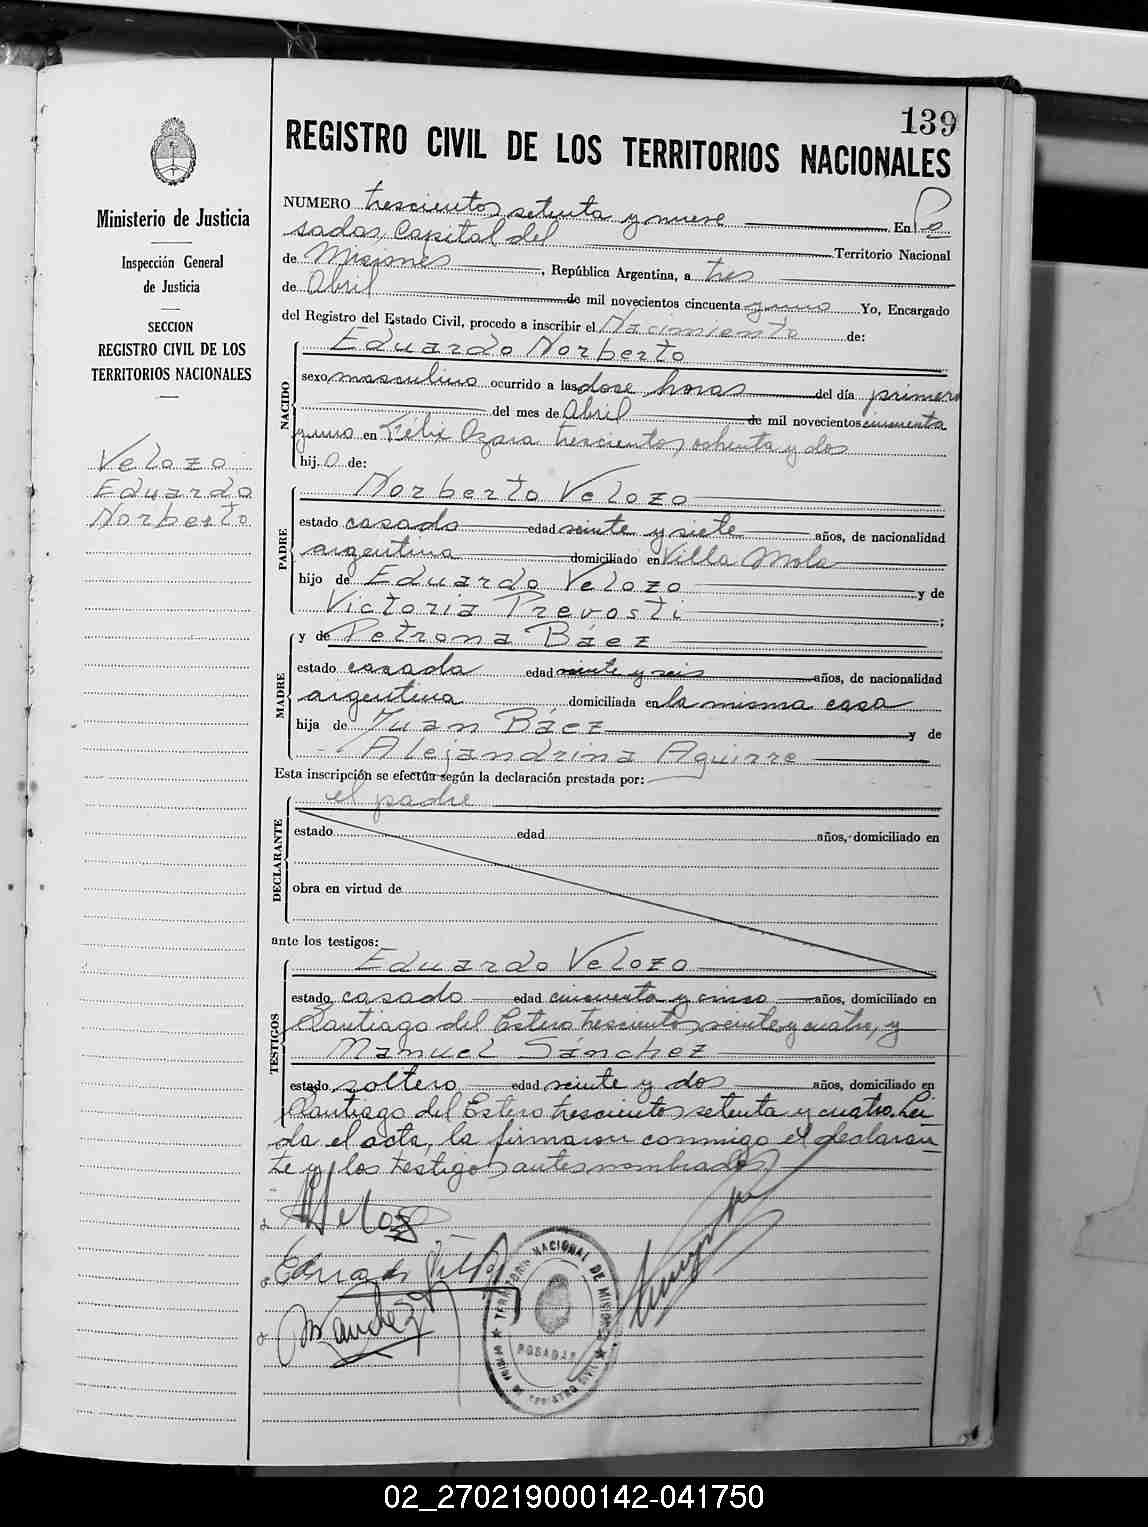 139
REGISTRO CIVIL DE LOS TERRITORIOS NACIONALES
Ministerio de Justicia
Inspección General
de Justicia
SECCION
REGISTRO CIVIL DE LOS
TERRITORIOS NACIONALES
Velozo
Eduardo
Norberto
NUMERO trescientos setenta y nueve En Po
sadas, Capital del Territorio Nacional
de Misiones, República Argentina, a tres
de Abril de mil novecientos cincuenta y uno Yo, Encargado
del Registro del Estado Civil, procedo a inscribir el Nacimiento de:
Eduardo Norberto
NACIDO
sexo masculino ocurrido a las doce horas del día primero
del mes de Abril de mil novecientos cincuenta
y uno en Félix Azara trescientos ochenta y dos
hijo de:
Norberto Velozo
PADRE
estado casado edad veinte y siete años, de nacionalidad
argentina domiciliado en Villa Mola
hijo de Eduardo Velozo y de
Victoria Prevosti;
y de Petrona Báez
MADRE
estado casada edad veinte y seis años, de nacionalidad
argentina domiciliada en la misma casa
hija de Juan Báez y de
Alejandrina Aguirre
Esta inscripción se efectúa según la declaración prestada por:
el padre
DECLARANTE
estado edad años, domiciliado en
obra en virtud de
ante los testigos:
Eduardo Velozo
TESTIGOS
estado casado edad cincuenta y cinco años, domiciliado en
Santiago del Estero trescientos veinte y cuatro, y
Manuel Sánchez
estado soltero edad veinte y dos años, domiciliado en
Santiago del Estero trescientos setenta y cuatro. Leí-
da el acta, la firmaron conmigo el declaran-
te y los testigos antes nombrados
Veloz
Eduardo
M Sanchez
TERRITORIO NACIONAL DE MISIONES
POSADAS
OFICINA DE REGISTRO CIVIL
02_270219000142-041750